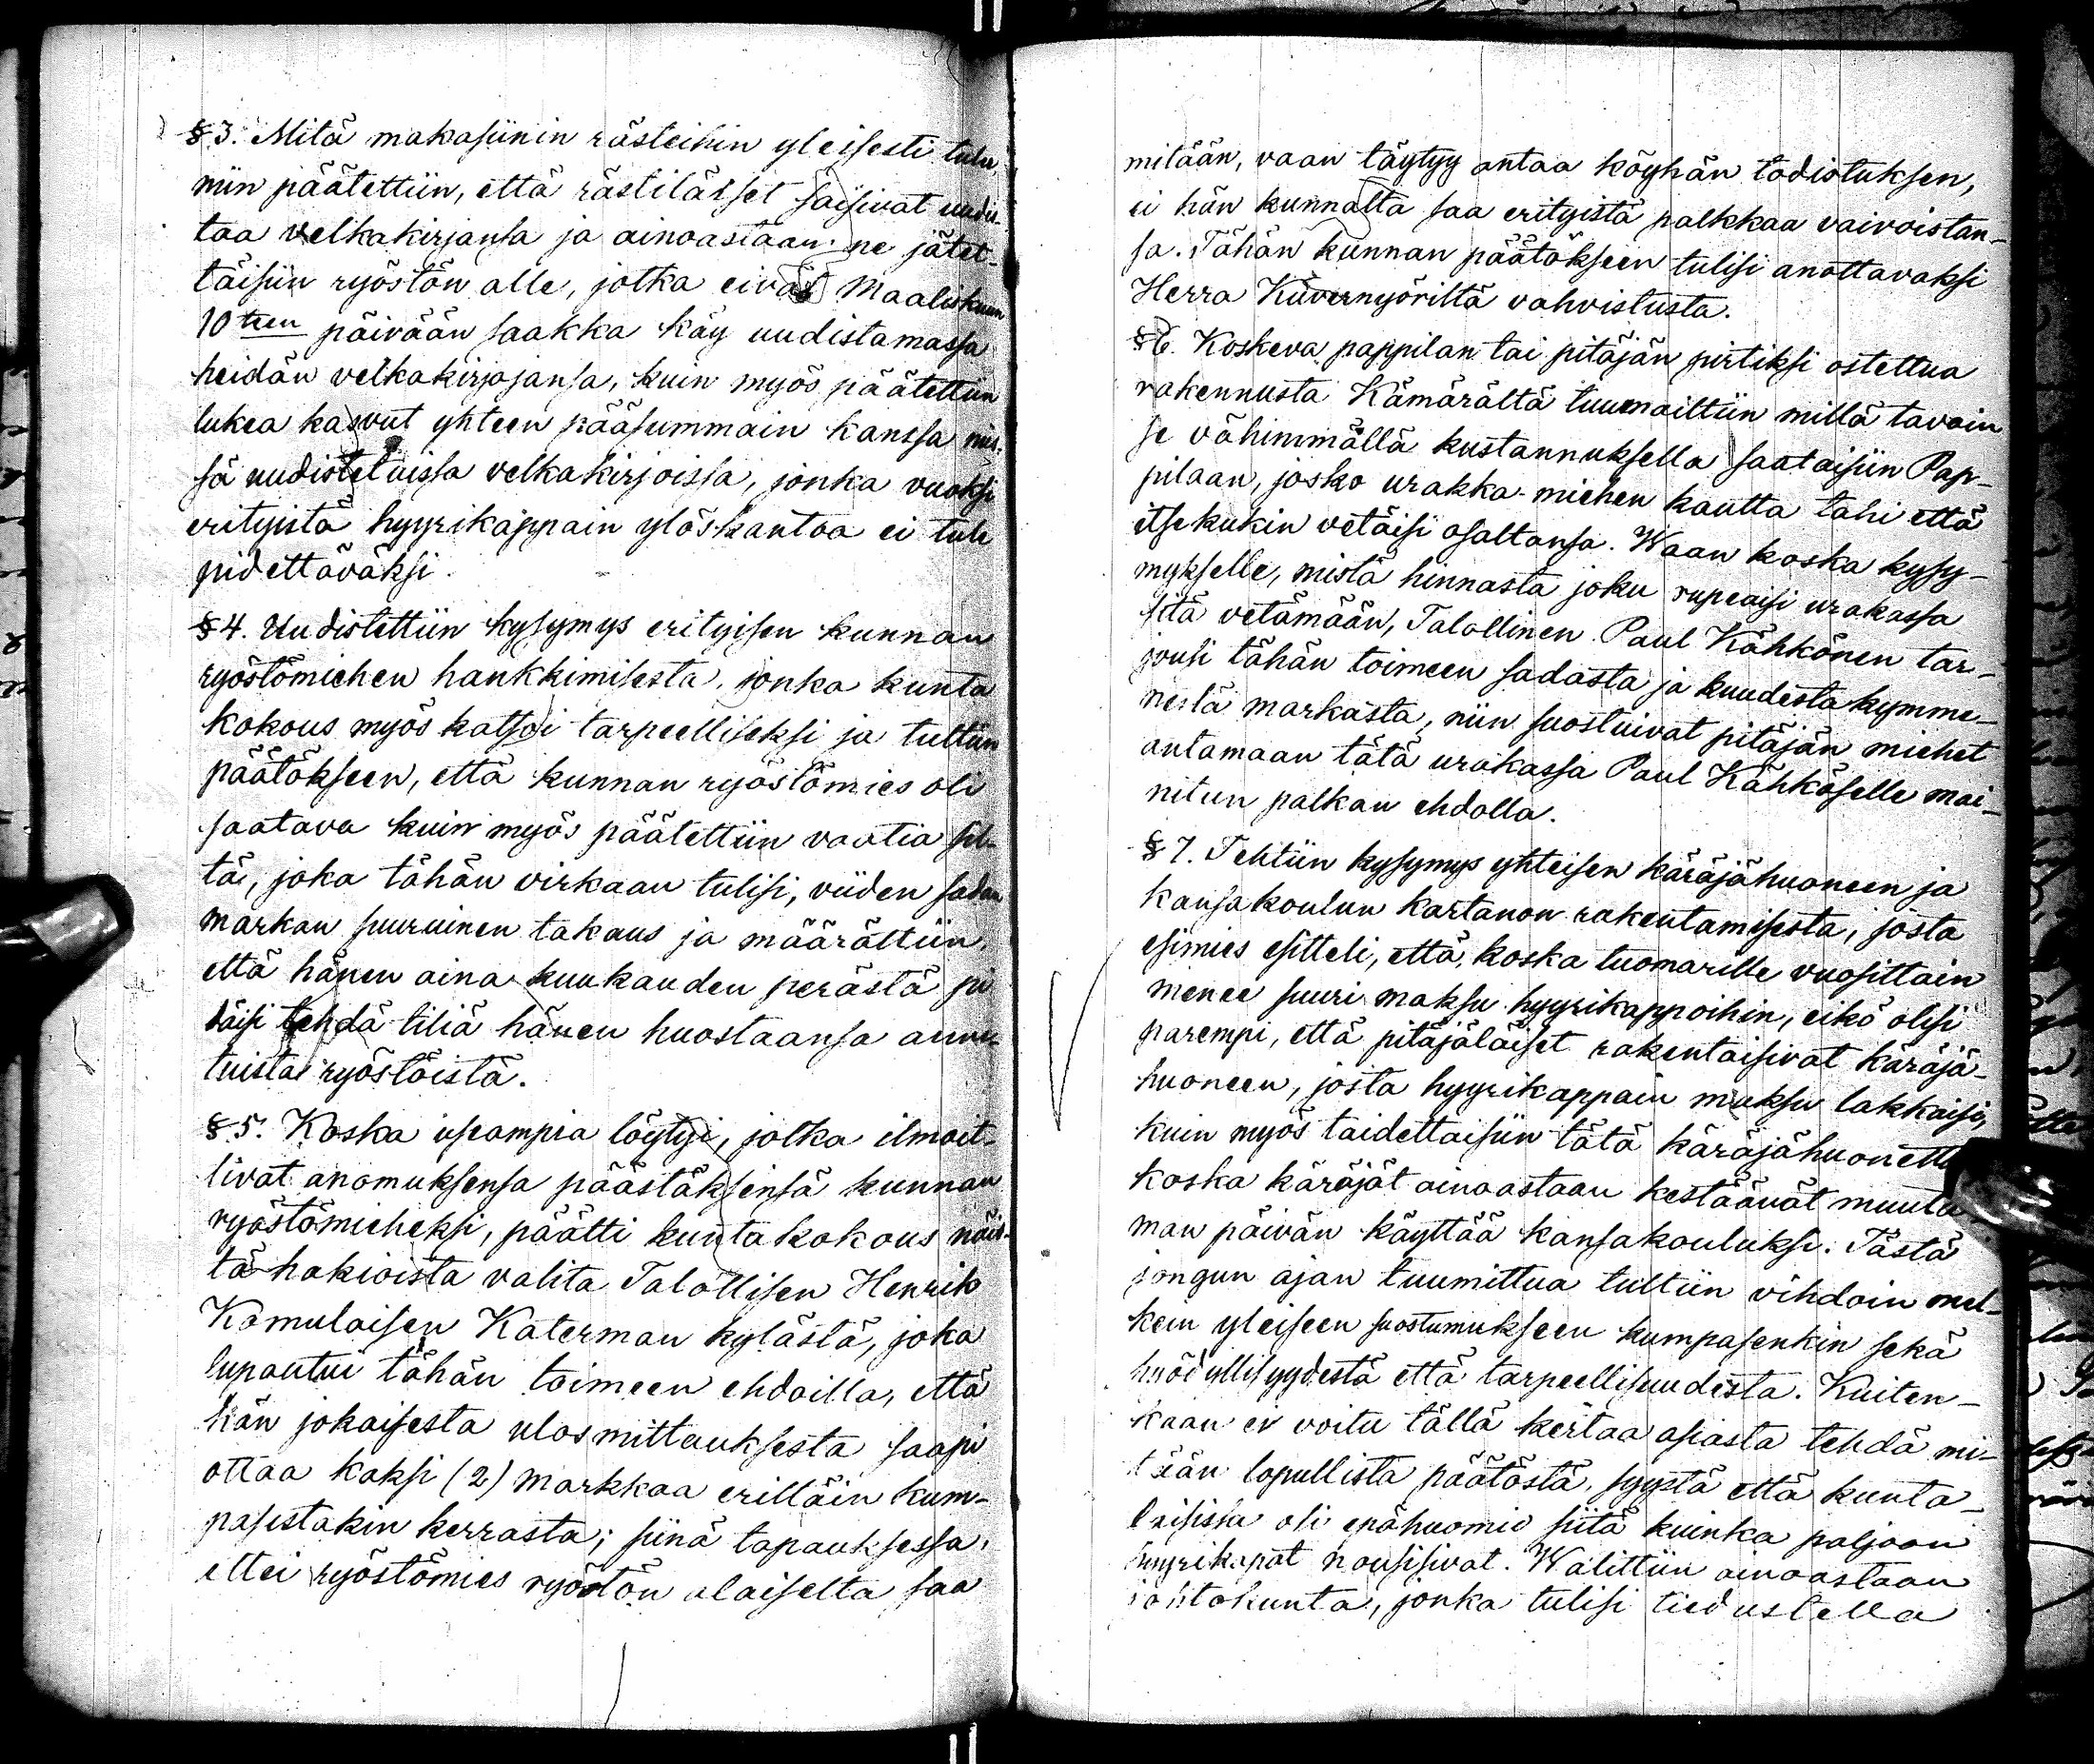 § 3. Mitä makasiinin rästeihin yleisesti tulee,
niin päätettiin, että rästiläiset saisivat uudis-
taa velkakirjansa ja ainoastaan ne jätet-
täisiin ryöstön alle, jotka eivät Maaliskuun
10 teen päivään saakka käy uudistamassa
heidän velkakirjojansa, kuin myös päätettiin
lukea kasvut yhteen pääsummain kanssa niis-
sä uudistetuissa velkakirjoissa, jonka vuoksi
erityistä hyyrikappain ylöskantoa ei tule
pidettäväksi.
§ 4. Uudistettiin kysymys erityisen kunnan
ryöstömiehen hankkimisesta, jonka kunta
kokous myös katsoi tarpeelliseksi ja tuttiin
päätökseen, että kunnan ryöstömies oli
saatava kuin myös päätettiin vaatia sil-
tä, joka tähän virkaan tulisi, viiden sadan
markan suuruinen takaus ja määrättiin,
että hänen aina kuukauden perästä pi
däisi tehdä tiliä hänen huostaansa annet-
tuista ryöstöistä.
§ 5. Koska useampia löytyi, jotka ilmoit-
tivat anomuksensa päästäksensä kunnan
ryöstömieheksi, päätti kuntakokous näis-
tä hakioista valita Talollisen Henrik
Komulaisen Katerman kylästä, joka
lupautui tähän toimeen ehdoilla, että
hän jokaisesta ulosmittauksesta saapi
ottaa kaksi (2) markkaa erittäin kum-
pasestakin kerrasta; siinä tapauksessa,
ettei ryöstömies ryöstön alaiselta saa
mitään, vaan täytyy antaa köyhän todistuksen,
ei hän kunnalta saa erityistä palkkaa vaivoistan-
sa. Tähän kunnan päätökseen tulisi anottavaksi
Herra Kuvernyöriltä vahvistusta.
§ 6. Koskeva pappilan tai pitäjän pirtiksi ostettua
rakennusta Kämärältä tuumailtiin millä tavoin
se vähimmällä kustannuksella saataisiin Pap-
pilaan, josko urakka-miehen kautta tahi että
itsekukin vetäisi osaltansa. Waan koska kysy-
mykselle, mistä hinnasta joku rupeaisi urakassa
sitä vetämään, Talollinen Paul Kähkönen tar-
jousi tähän toimeen sadasta ja kuudesta kymme-
nestä markasta, niin suostuivat pitäjän miehet
antamaan tätä urakassa Paul Kähköselle mai-
nitun palkan ehdolla.
§ 7. Tehtiin kysymys yhteisen käräjähuoneen ja
kansakoulun kartanon rakentamisesta, josta
esimies esitteli, että, koska tuomarille vuosittain
menee suuri maksu hyyrikappoihin, eikö olisi
parempi, että pitäjäläiset rakentaisivat käräjä-
huoneen, josta hyyrikappain maksu lakkaisi,
kuin myös taidettaisiin tätä käräjähuonetta
koska käräjät ainoastaan kestäävät muuta-
man päivän käyttää kansakouluksi. Tästä
jongun ajan tuumittua tultiin vihdoin mel-
kein yleiseen suostumukseen kumpasenkin sekä
hyödyllisyydestä että tarpeellisuudesta. Kuiten-
kaan ei voitu tällä kertaa asiasta tehdä mi-
tään lopullista päätöstä, syystä että kunta-
laisissa oli epähuomio siitä kuinka paljoon
hyyrikapat nousisivat. Walittiin ainoastaan
johtokunta, jonka tulisi tiedustella